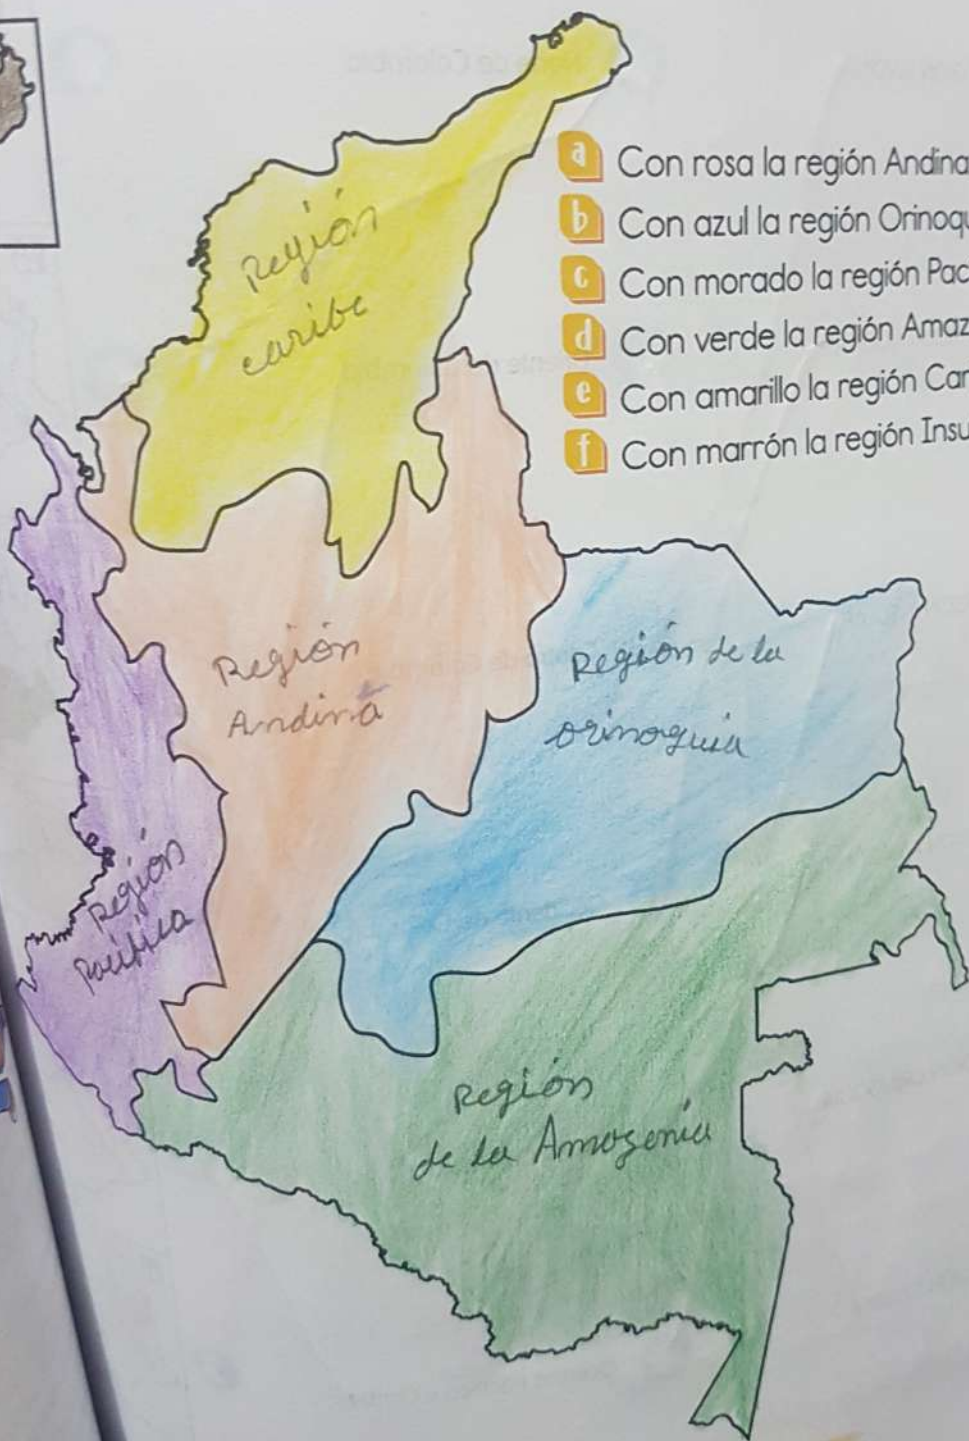 a Con rosa la región Andina
b Con azul la región Orinoqu
c Con morado la región Pac
d Con verde la región Amaz
e Con amarillo la región Car
f Con marrón la región Insu
Región
caribe
Región
Andina
Región de la
orinoquia
Región
Pacífica
Región
de la Amazonia